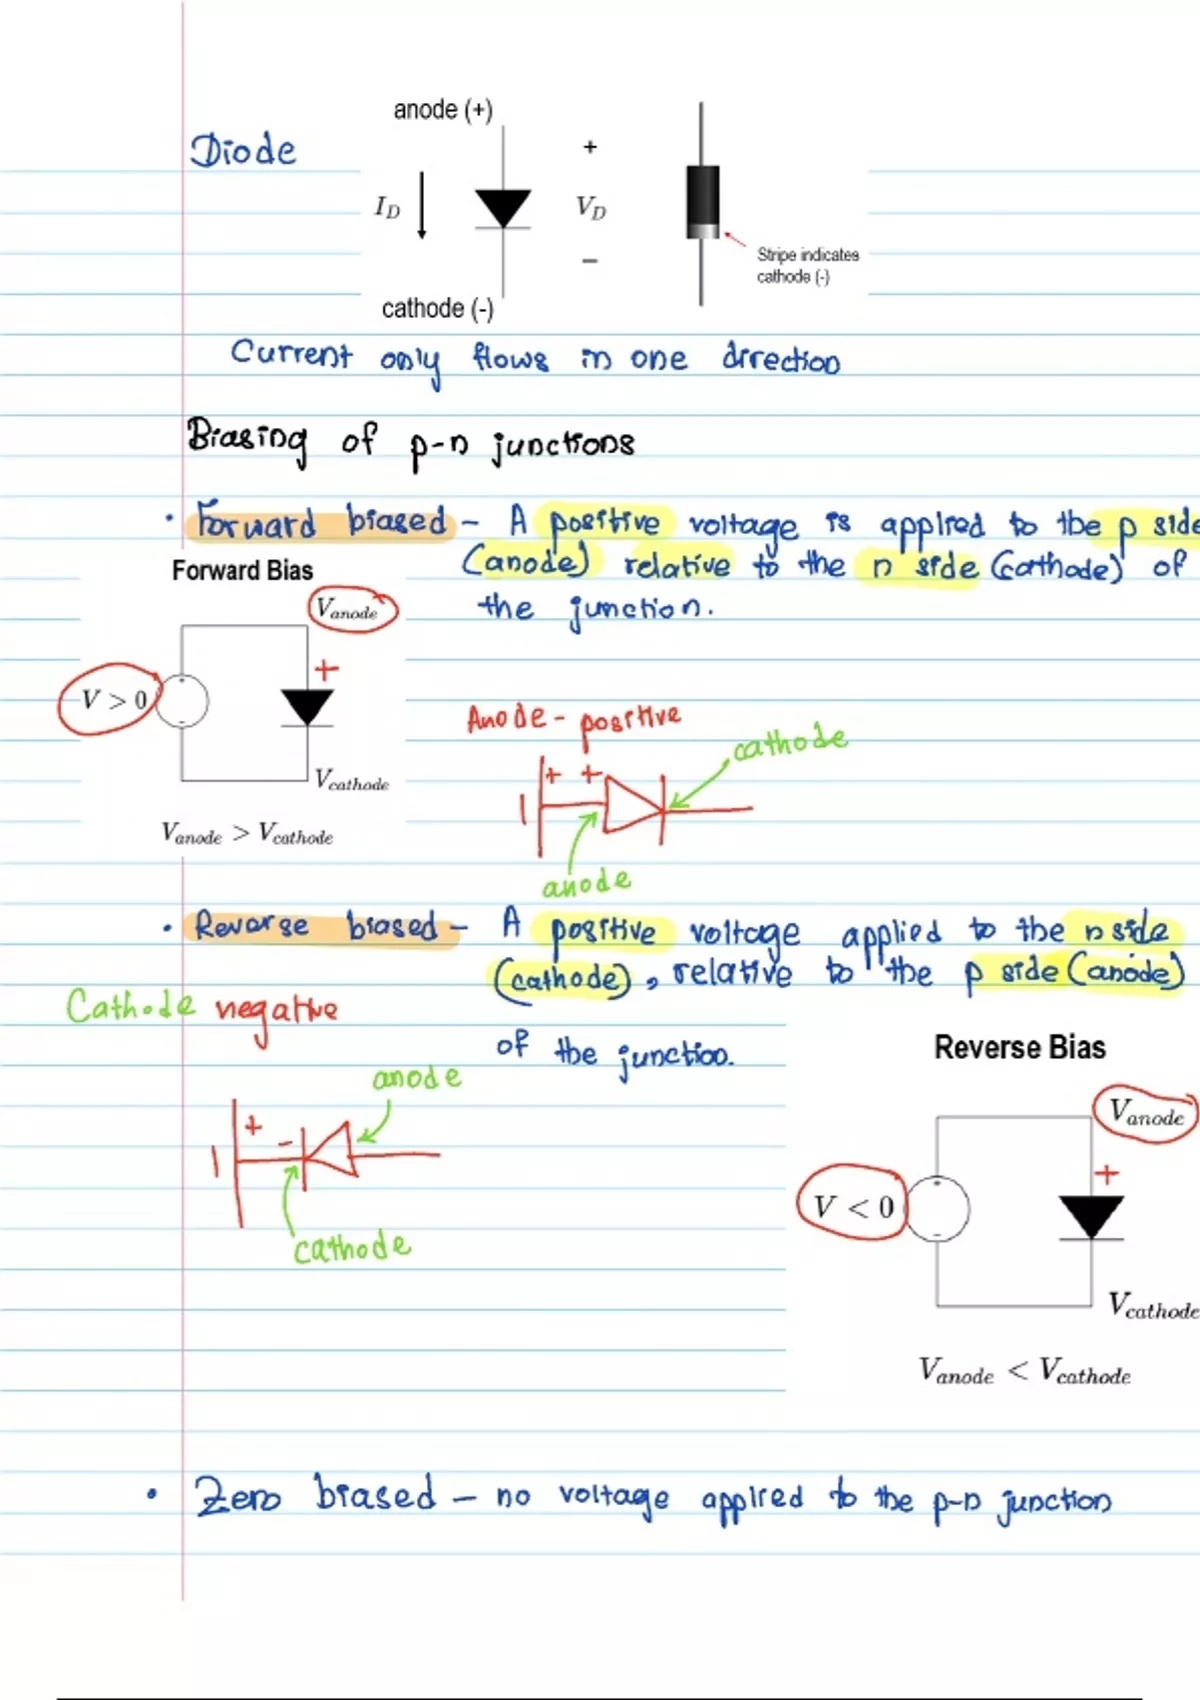 anode (+)
Diode
+
I_D
V_D
−
Stripe indicates
cathode (-)
cathode (-)
Current only flows in one direction
Biasing of p-n junctions
• Forward biased - A positive voltage is applied to the p side
(anode) relative to the n side (cathode) of
the junction.
Forward Bias
V_anode
+
V > 0
+
-
V_cathode
V_anode > V_cathode
Anode - positive
cathode
+ +
anode
• Reverse biased - A positive voltage applied to the n side
(cathode), relative to the p side (anode)
of the junction.
Cathode negative
anode
+
-
cathode
Reverse Bias
V_anode
+
V < 0
+
-
V_cathode
V_anode < V_cathode
• Zero biased - no voltage applied to the p-n junction